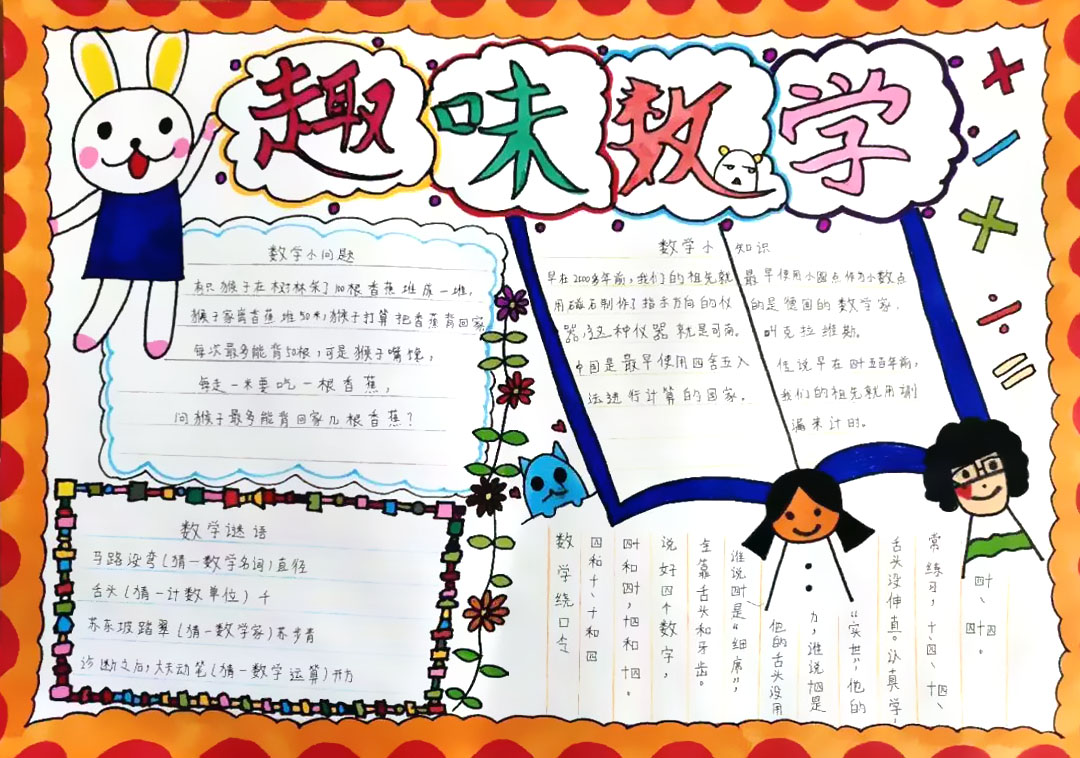 趣味数学
数学小问题
有只猴子在树林采了100根香蕉堆成一堆,
猴子家离香蕉堆50米,猴子打算把香蕉背回家
每次最多能背50根,可是猴子嘴馋,
每走一米要吃一根香蕉,
问猴子最多能背回家几根香蕉?
数学谜语
马路没弯(猜一数学名词)直径
舌头(猜一计数单位)千
苏东坡踏翠(猜一数学家)苏步青
诊断之后,大夫动笔(猜一数学运算)开方
数学小知识
早在2000多年前,我们的祖先就
用磁石制作了指示方向的仪
器,这种仪器就是司南。
中国是最早使用四舍五入
法进行计算的国家。
最早使用小圆点作为小数点
的是德国的数学家,
叫克拉维斯。
传说早在四千五百年前,
我们的祖先就用刻
漏来计时。
数学绕口令
四和十、十和四
四十和四,十四和十四。
说好四个数字,
全靠舌头和牙齿。
谁说四十是“细席”,
他的舌头没用
力,谁说十四是
“实世”,他的
舌头没伸直。认真学,
常练习,十、四、十四、
四十、四十四。